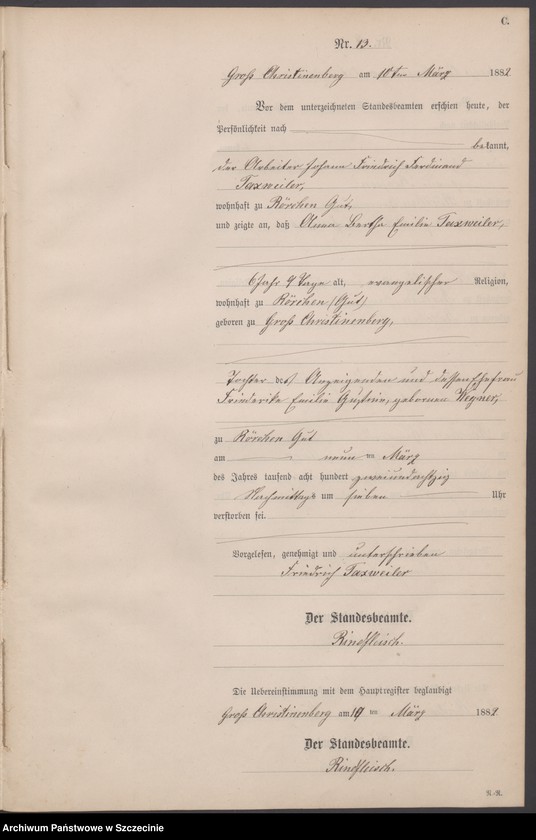 C.
Nr. 13.
Groß Christinenberg am 10ten März 1882
Vor dem unterzeichneten Standesbeamten erschien heute, der
Persönlichkeit nach
bekannt,
der Arbeiter Johann Friedrich Ferdinand
Taxweiler,
wohnhaft zu Rörchen Gut,
und zeigte an, daß Anna Bertha Emilie Taxweiler,
6 Jahr 9 Tage alt, evangelischer Religion,
wohnhaft zu Rörchen (Gut)
geboren zu Groß Christinenberg,
Tochter des Anzeigenden und dessen Ehefrau
Friederike Emilie geborenen Wegner,
zu Rörchen Gut
am neun ten März
des Jahres tausend acht hundert zweiundachtzig
Nachmittags um sieben Uhr
verstorben sei.
Vorgelesen, genehmigt und unterschrieben
Friedrich Taxweiler
Der Standesbeamte.
Rindfleisch.
Die Uebereinstimmung mit dem Hauptregister beglaubigt
Groß Christinenberg am ten März 1882
Der Standesbeamte.
Rindfleisch.
R.-R.
Archiwum Państwowe w Szczecinie